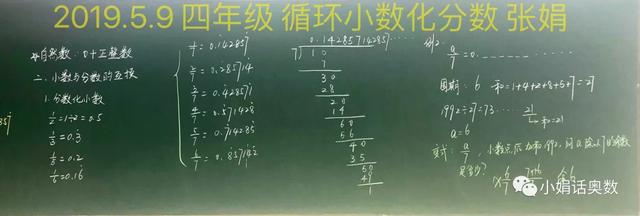 2019.5.9 四年级 循环小数化分数 张娟
自然数:0+正整数
二、小数与分数的互换
1.分数化小数
1/2=1÷2=0.5
1/3=0.3̇
1/5=0.2
1/6=0.16̇
1/7=0.1̇42857̇
2/7=0.2̇85714̇
3/7=0.4̇28571̇
4/7=0.5̇71428̇
5/7=0.7̇14285̇
6/7=0.8̇57142̇
0.142857142857……
7
10
7
30
28
20
14
60
56
40
35
50
49
1
例2.
a/7=0.
周期:6 和=1+4+2+8+5+7=27
1992÷27=73……21
和=21
a=6
变式:a/7,小数点后
是多少?
小娟话奥数